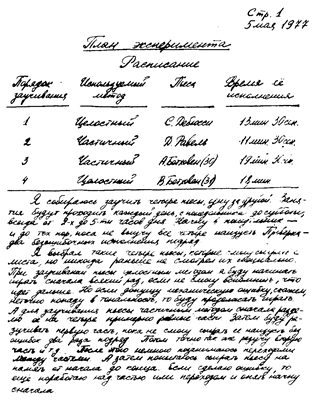 Стр. 1
5 мая 1977
План эксперимента
Расписание
Порядок заучивания Используемый метод Пьеса Время её исполнения
1 Целостный С. Дебюсси 13 мин. 30 сек.
2 Частичный Д. Равель 11 мин. 30 сек.
3 Частичный А. Бетховен (31) 19 мин. 30 сек.
4 Целостный В. Бетховен (31) 18 мин
Я собираюсь заучить четыре пьесы, одну за другой. Заня-
тия будут проходить каждый день, с понедельника до субботы,
всегда от 2х до 5ти часов дня. Начну в понедельник –
и до тех пор, пока не выучу все четыре наизусть
два безошибочных исполнения подряд.
Я выбрал такие четыре пьесы, которые могу сыграть с
листа, но никогда раньше не смотрел их специально.
При заучивании пьесы целостным методом я буду начинать
играть сначала всякий раз, если не смогу вспомнить, что
идёт дальше. Но если допущу механическую ошибку, скажем,
неточно попаду в тональность, то буду продолжать играть.
А для заучивания пьесы частичным методом сначала разде-
лю её на четыре примерно равные части. Затем буду ра-
зучивать первую часть, пока не смогу сыграть её наизусть без
ошибок два раза подряд. Потом точно так же разучу вторую
часть и т.д. После этого немного позанимаюсь переходами
между частями. А затем попытаюсь сыграть пьесу на
память от начала до конца. Если сделаю ошибку, то
ещё поработаю над частью или переходом и опять начну
сначала